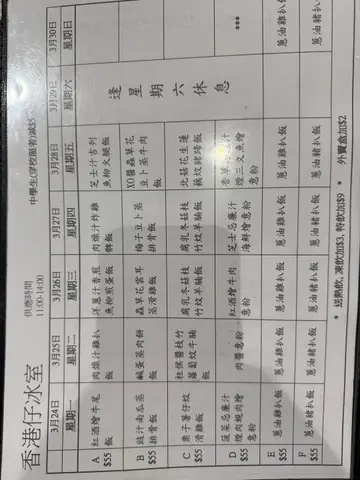 香港仔冰室
供應時間
11:00-14:00
中學生(穿校服者)減$5
3月24日 3月25日 3月26日 3月27日 3月28日 3月29日 3月30日
星期一 星期二 星期三 星期四 星期五 星期六 星期日
A 紅酒燴牛尾 肉燥汁雞扒 洋蔥汁香煎 肉燥汁炸雞 芝士汁吉列
$55 飯 飯 魚柳煎蛋飯 髀飯 魚柳火腿飯
B 豉汁南瓜蒸 鹹蛋蒸肉餅 蟲草花雲耳 梅子豆卜蒸 XO醬蟲草花
$55 排骨飯 飯 蒸滑雞飯 排骨飯 豆卜蒸牛肉飯
逢星期六休息
C 栗子薯仔炆 枝竹 腐乳冬菇枝 腐乳冬菇枝 北菇花生蓮
$55 滑雞飯 蘿蔔炆牛腩飯 竹炆羊腩飯 竹炆羊腩飯 藕炆豬飯
D 菠菜忌廉汁 肉醬意粉 紅酒燴牛肉 芝士忌廉汁 香草汁 ***
$55 煙肉燴意粉 意粉 海鮮燴意粉 煙三文魚燴意粉
E 蔥油雞扒飯 蔥油雞扒飯 蔥油雞扒飯 蔥油雞扒飯 蔥油雞扒飯 蔥油雞扒
$55
F 蔥油豬扒飯 蔥油豬扒飯 蔥油豬扒飯 蔥油豬扒飯 蔥油豬扒飯 蔥油豬扒
$55
* 送熱飲, 凍飲加$3, 特飲加$9 * * 外賣盒加$2